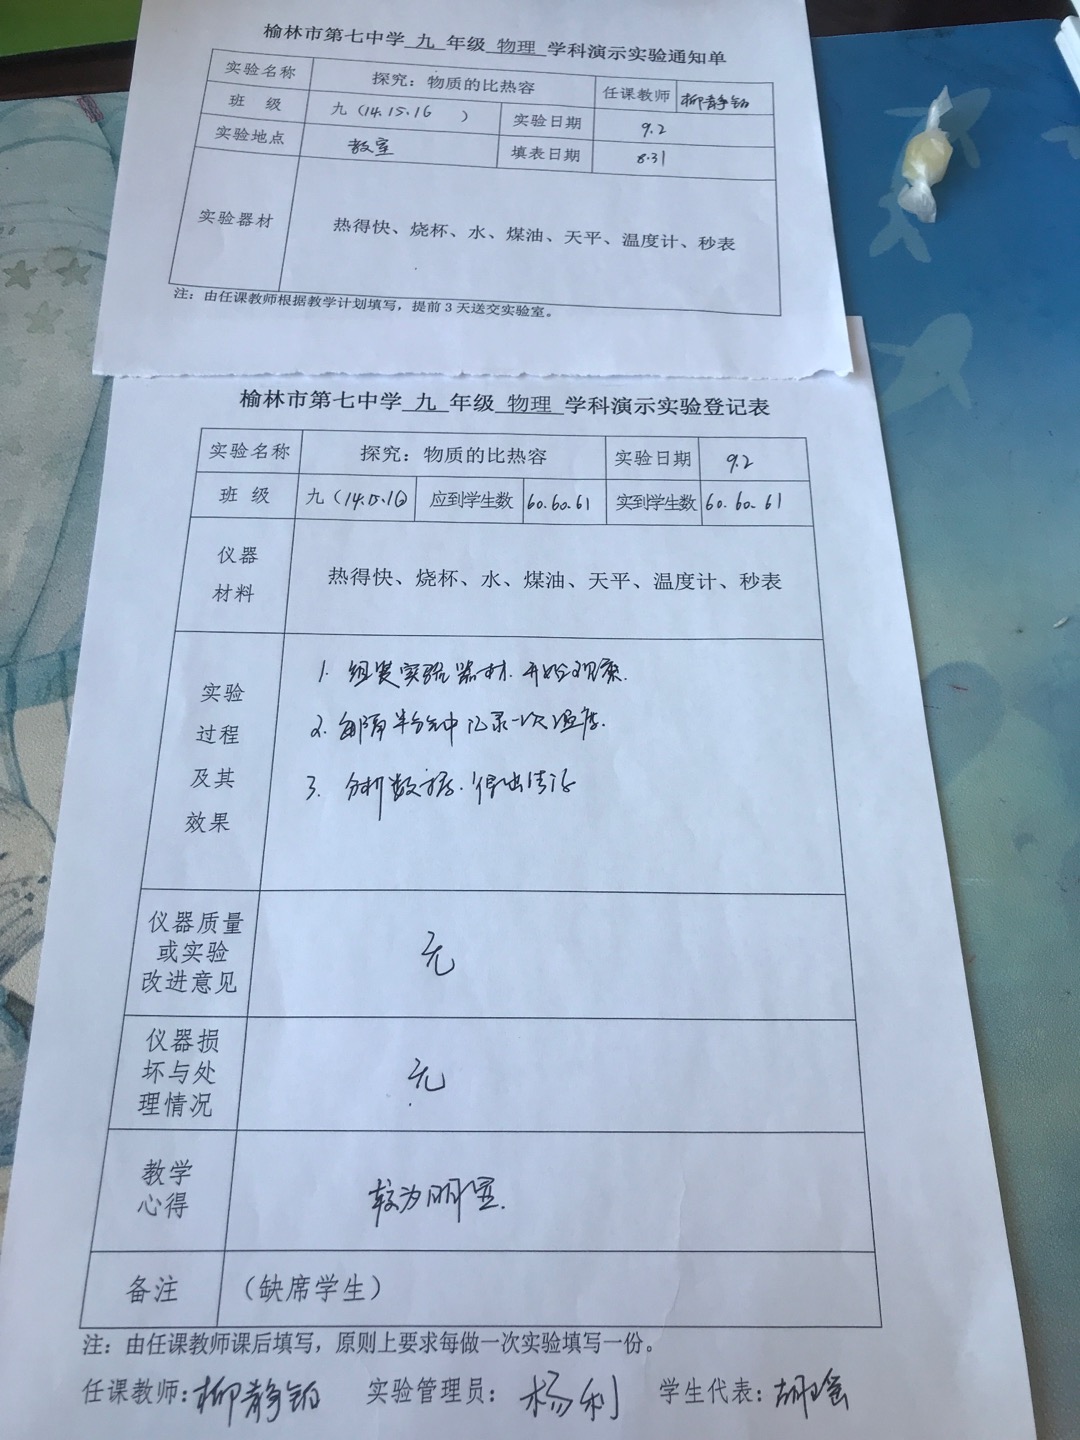 榆林市第七中学 九 年级 物理 学科演示实验通知单
实验名称 探究：物质的比热容 任课教师 柳静
班 级 九（14.15.16 ） 实验日期 9.2
实验地点 教室 填表日期 8.31
实验器材 热得快、烧杯、水、煤油、天平、温度计、秒表
注：由任课教师根据教学计划填写，提前 3 天送交实验室。
榆林市第七中学 九 年级 物理 学科演示实验登记表
实验名称 探究：物质的比热容 实验日期 9.2
班 级 九（14.15.16） 应到学生数 60.60.61 实到学生数 60.60.61
仪器
材料
热得快、烧杯、水、煤油、天平、温度计、秒表
实验
过程
及其
效果
1. 组装实验器材.开始观察.
2. 每隔半分钟记录一次温度.
3. 分析数据.得出结论
仪器质量
或实验
改进意见
无
仪器损
坏与处
理情况
无
教学
心得
较为明显.
备注 （缺席学生）
注：由任课教师课后填写，原则上要求每做一次实验填写一份。
任课教师：柳静 实验管理员：杨利 学生代表：胡